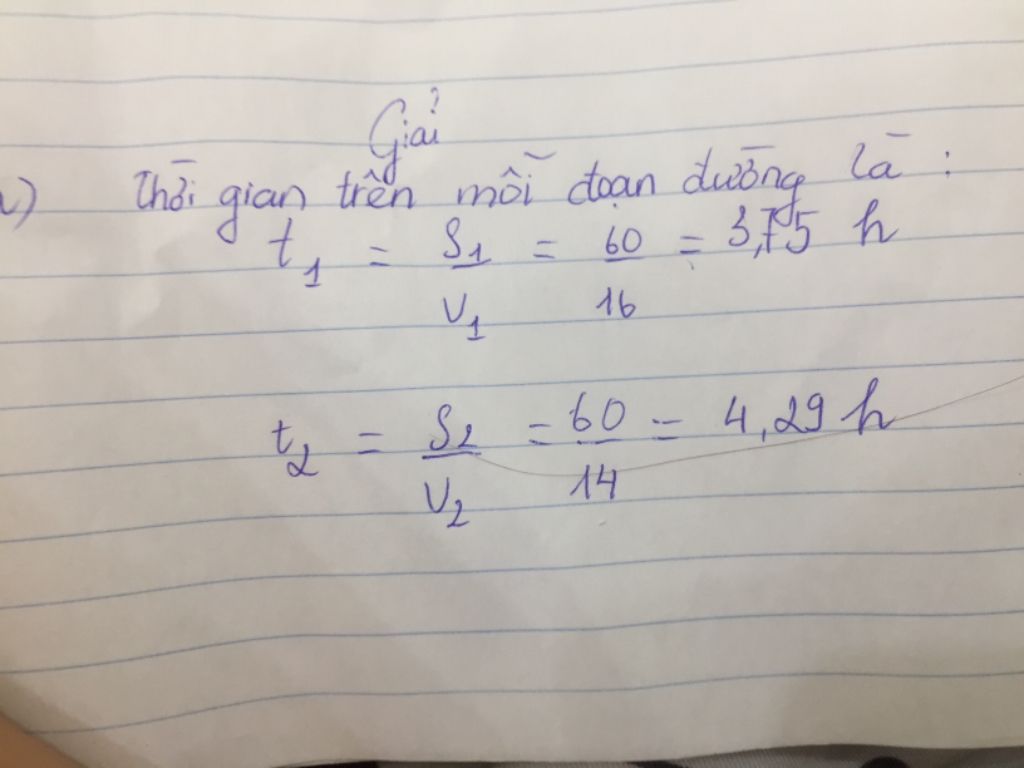 Giải
a) Thời gian trên mỗi đoạn đường là :
t1 = S1/V1 = 60/16 = 3,75 h
t2 = S2/V2 = 60/14 = 4,29 h